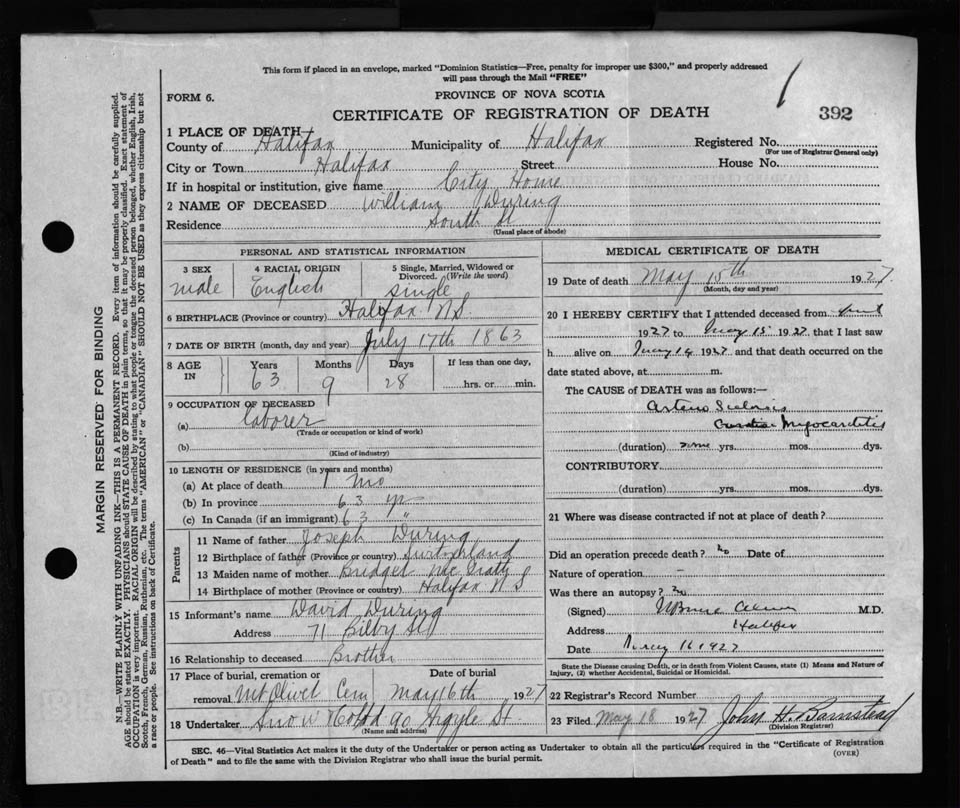 This form if placed in an envelope, marked "Dominion Statistics—Free, penalty for improper use $300," and properly addressed
will pass through the Mail "FREE"
FORM 6.
PROVINCE OF NOVA SCOTIA
CERTIFICATE OF REGISTRATION OF DEATH
392
1 PLACE OF DEATH—
County of Halifax Municipality of Halifax Registered No.
(For use of Registrar General only)
City or Town Halifax Street House No.
If in hospital or institution, give name City Home
2 NAME OF DECEASED William During
Residence South St
(Usual place of abode)
PERSONAL AND STATISTICAL INFORMATION
3 SEX male
4 RACIAL ORIGIN English
5 Single, Married, Widowed or Divorced. (Write the word) single
6 BIRTHPLACE (Province or country) Halifax N.S.
7 DATE OF BIRTH (month, day and year) July 17th 1863
8 AGE IN Years 63 Months 9 Days 28 If less than one day, hrs. or min.
9 OCCUPATION OF DECEASED
(a) laborer
(Trade or occupation or kind of work)
(b)
(Kind of industry)
10 LENGTH OF RESIDENCE (in years and months)
(a) At place of death 1 mo
(b) In province 63 yr
(c) In Canada (if an immigrant) 63 "
Parents
11 Name of father Joseph During
12 Birthplace of father (Province or country) Switzerland
13 Maiden name of mother Bridget
14 Birthplace of mother (Province or country) Halifax N S
15 Informant's name David During
Address 71 Bilby St
16 Relationship to deceased Brother
17 Place of burial, cremation or removal Mt Olivet Cem Date of burial May 16th 1927
18 Undertaker Snow 90 Argyle St.
(Name and address)
MEDICAL CERTIFICATE OF DEATH
19 Date of death May 15th 1927
(Month, day and year)
20 I HEREBY CERTIFY that I attended deceased from
1927 to May 15 1927 that I last saw
h alive on May 14 1927 and that death occurred on the
date stated above, at m.
The CAUSE of DEATH was as follows:—
Arterio Sclerosis
Myocarditis
(duration) yrs. mos. dys.
CONTRIBUTORY
(duration) yrs. mos. dys.
21 Where was disease contracted if not at place of death?
Did an operation precede death? no Date of
Nature of operation –
Was there an autopsy? no
(Signed) M.D.
Address Halifax
Date May 16 1927
State the Disease causing Death, or in death from Violent Causes, state (1) Means and Nature of
Injury, (2) whether Accidental, Suicidal or Homicidal.
22 Registrar's Record Number
23 Filed May 18 1927 John H. Barnstead
(Division Registrar)
SEC. 46—Vital Statistics Act makes it the duty of the Undertaker or person acting as Undertaker to obtain all the particulars required in the "Certificate of Registration
of Death" and to file the same with the Division Registrar who shall issue the burial permit.
(OVER)
MARGIN RESERVED FOR BINDING
N.B.—WRITE PLAINLY, WITH UNFADING INK—THIS IS A PERMANENT RECORD. Every item of information should be carefully supplied.
AGE should be stated EXACTLY. PHYSICIANS should STATE CAUSE OF DEATH in plain terms, so that it may be properly classified. Exact statement of
OCCUPATION is very important. RACIAL ORIGIN will be described by stating to what people or tongue the deceased person belonged, whether English, Irish,
Scotch, French, German, Russian, Ruthenian, etc. The terms "AMERICAN" or "CANADIAN" SHOULD NOT BE USED as they express citizenship but not
a race or people. See instructions on back of Certificate.